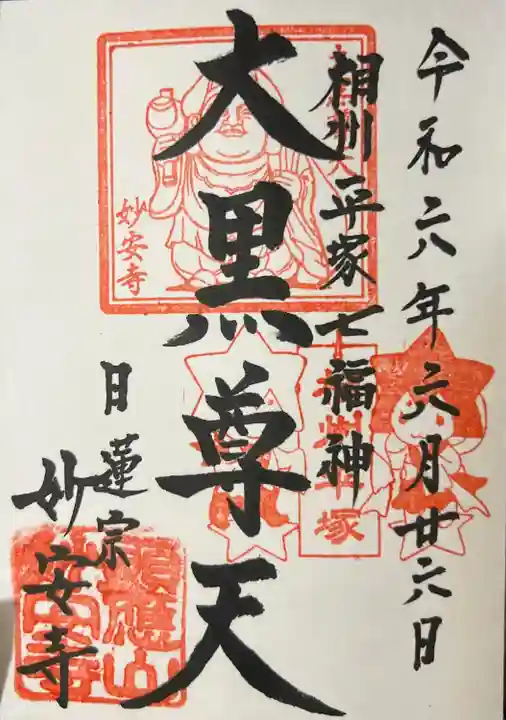 令和六年六月廿六日
相州平塚七福神
大黒尊天
日蓮宗
妙安寺
妙安寺
相州平塚